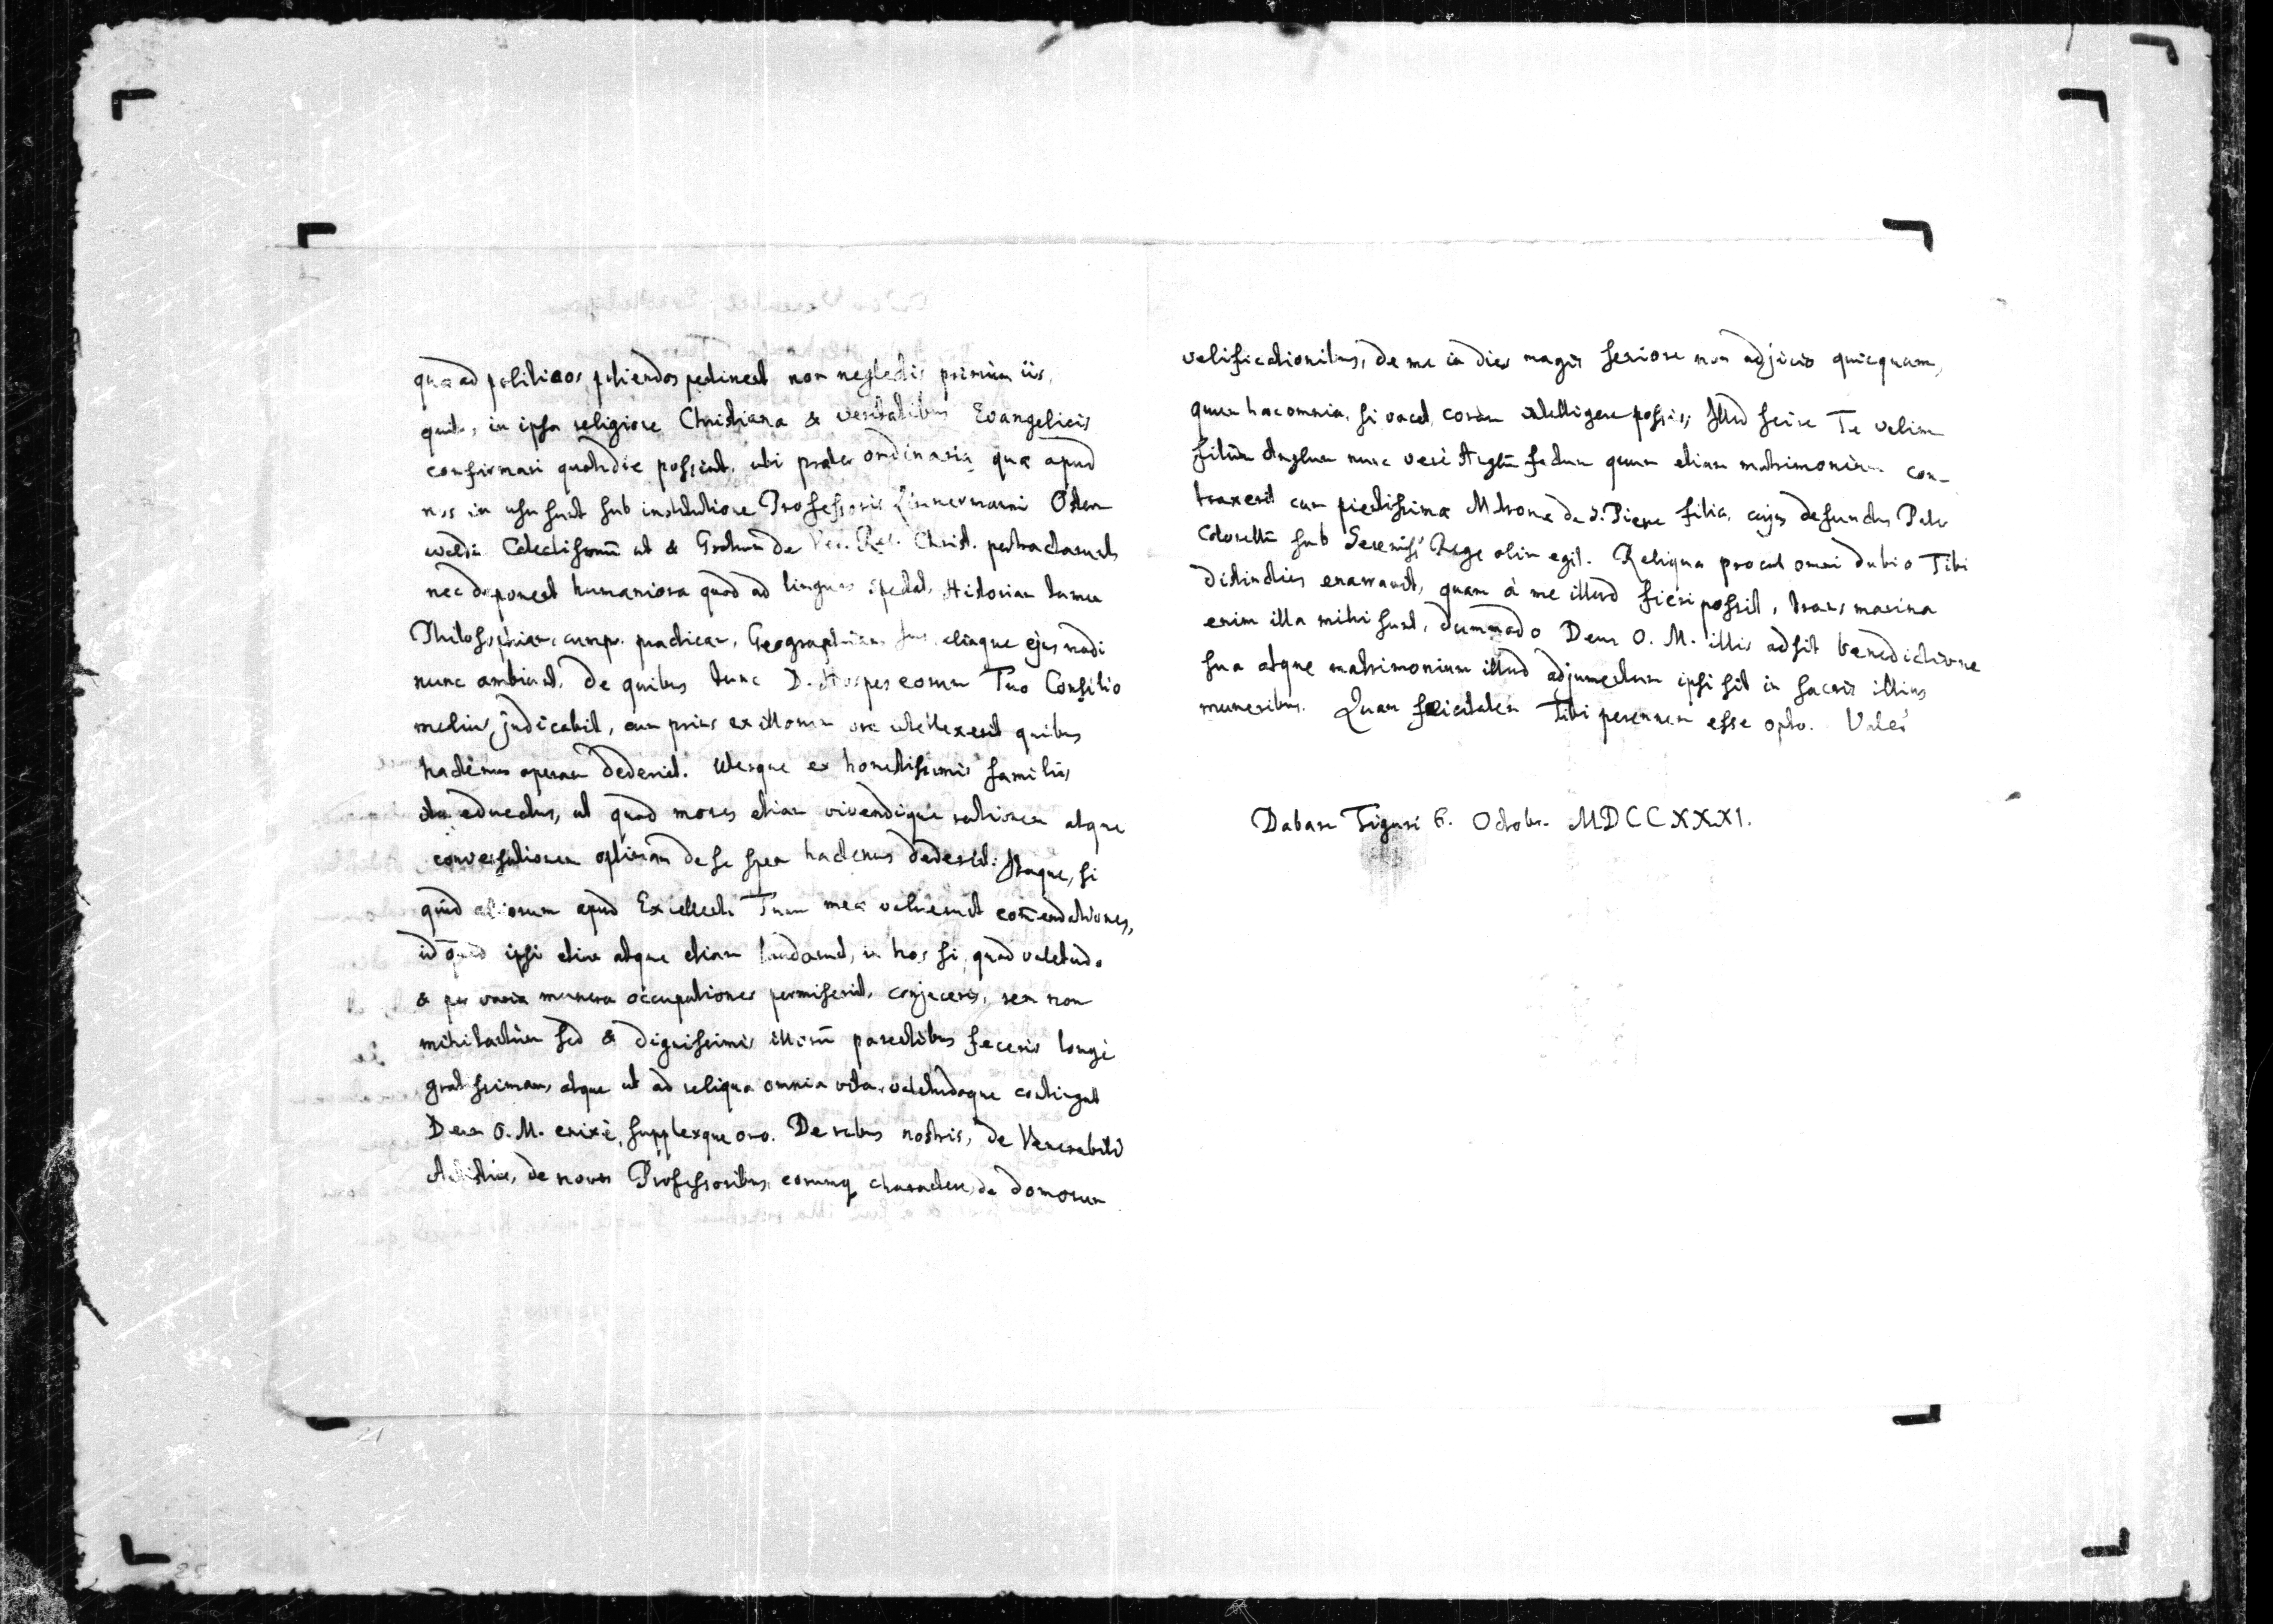 quæ ad politicos poliendos pertinent non neglectis primùm iis,
quib, in ipsa religione Christiana & veritatibus Evangelicis
confirmari quotidie possint, ubi præter ordinaria quæ apud
nos in usu sunt sub institutione Professoris Zimmermanni Oster
waldii Catechismū ut & Grotium de Ver. Rel. Christ. pertractarunt
nec deponent humaniora quod ad linguas spectat, Historiam tamen
Philosophiam, cumpr. practicam, Geographiam Jus, aliaque ejus modi
nunc ambiunt, de quibus tunc D. Hospes eorum Tuo Consilio
melius judicabit, cum prius ex illorum ore intellexerit quibus
hactenus operam dederint. Uterque ex honestissimis familiis
ita eductus, ut quod mores etiam vivendique rationem atque
conversationem optimam de se spem hactenus dederit. Itaque, si
quid aliorum apud Excellent. Tuam meæ valuerunt com̄endationes,
id quod ipsi etiam atque etiam laudarunt, in hos si, quod valetudo
& per varia munera occupationes permiserint, conjeceris, rem non
mihi tantùm sed & dignissimis illorū parentibus feceris longè
gratissimam, atque ut ad reliqua omnia vita, valetudoque contingat
Deum O. M. enixè, supplexque oro. De rebus nostris, de Venerabili
Antistite, de novis Professoribus, eorumq charactere, de domorum
velificationibus, de me in dies magis seniore non adjicio quicquam,
quum hæc omnia, si vacet, coram intelligere possis; Illud scire Te velim
filiùm Anglum nunc verè Anglū factum quum etiam matrimonium con-
traxerit cum pientissimæ Matronæ de S. Piere filia, cujus defunctus Pater
Colonellū sub Sereniss. Rege olim egit. Reliqua procul omni dubio Tibi
distinctius enarravit, quam à me illud fieri possit, trans marina
enim illa mihi sunt, dummodo Deus O. M. illis adsit benedictione
sua atque matrimonium illud adjumentum ipsi sit in sacris illius
muneribus. Quam felicitatem Tibi perennem esse opto. Vale!
Dabam Tiguri 6. Octobr. MDCCXXXI.